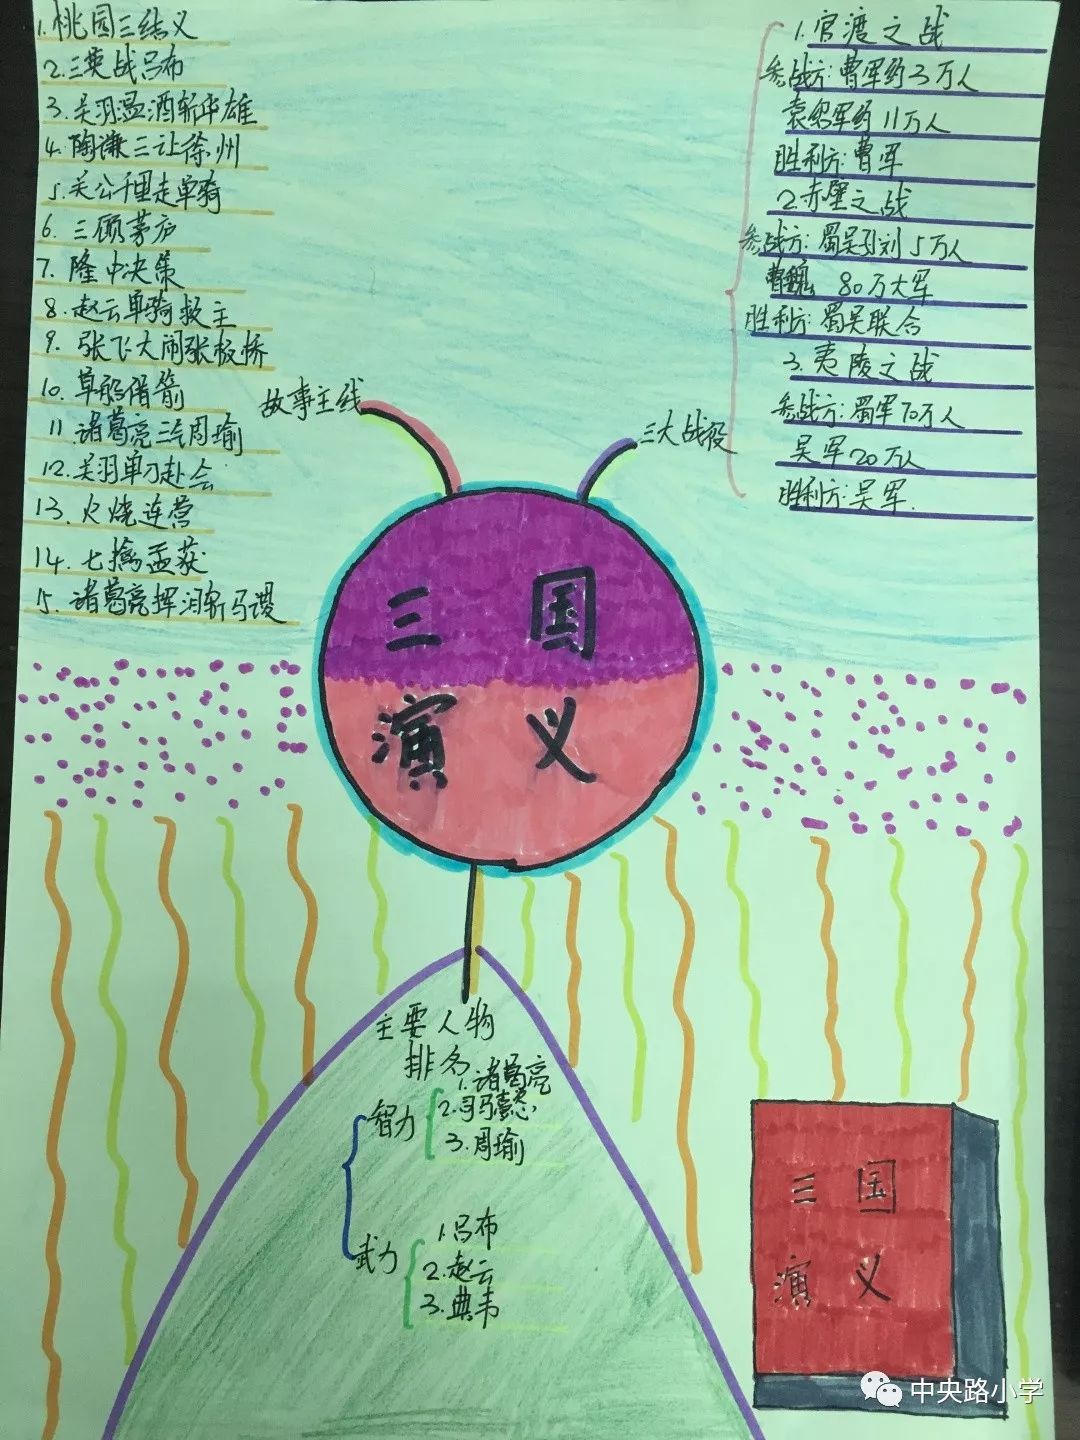 1.桃园三结义
2.三英战吕布
3.关羽温酒斩华雄
4.陶谦三让徐州
5.关公千里走单骑
6.三顾茅庐
7.隆中决策
8.赵云单骑救主
9.张飞大闹张板桥
10.草船借箭
11.诸葛亮三气周瑜
12.关羽单刀赴会
13.火烧连营
14.七擒孟获
15.诸葛亮挥泪斩马谡
故事主线
三大战役
1.官渡之战
参战方:曹军约3万人
袁绍军约11万人
胜利方:曹军
2.赤壁之战
参战方:蜀吴孙刘5万人
80万大军
胜利方:蜀吴联合
3.夷陵之战
参战方:蜀军70万人
吴军20万人
胜利方:吴军.
三国
演义
主要人物
排名
智力
1.诸葛亮
2.司马懿
3.周瑜
武力
1.吕布
2.赵云
3.典韦
三国
演义
中央路小学